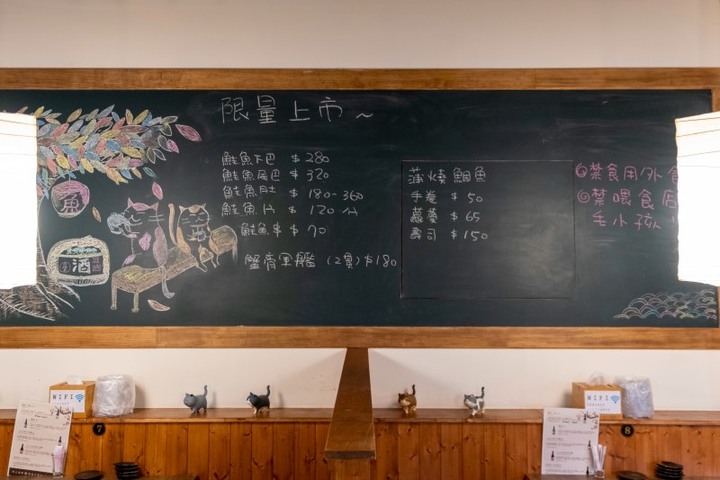 限量上市~
鮭魚下巴 $280
鮭魚尾巴 $320
鮭魚肚 $180-360
鮭魚片 $120/分
鮭魚串 $70
蟹膏軍艦 (2貫) $180
蒲燒鯛魚
手卷 $50
蘿蔓 $65
壽司 $150
禁食用外食
禁喂食店
毛小孩
魚
酒
WIFI
7
WIFI
8